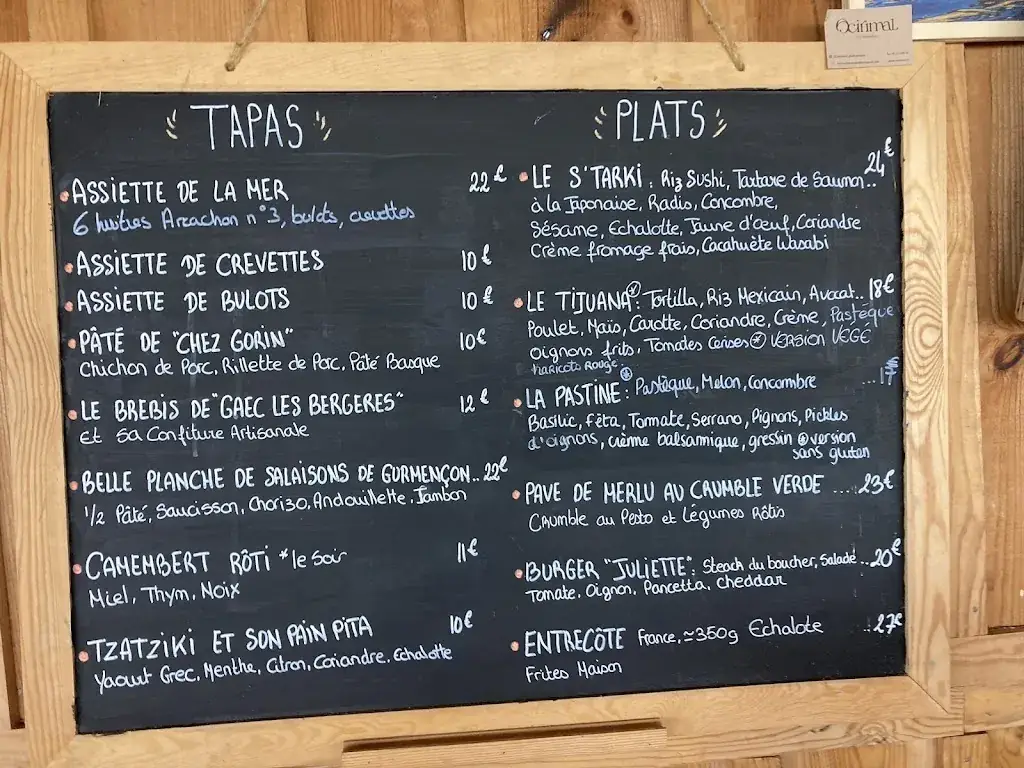 Ocinmal
TAPAS
ASSIETTE DE LA MER 22€
6 huîtres Arcachon n°3, bulots, crevettes
ASSIETTE DE CREVETTES 10€
ASSIETTE DE BULOTS 10€
PÂTÉ DE "CHEZ GORIN" 10€
Chichon de Porc, Rillette de Porc, Pâté Basque
LE BREBIS DE "GAEC LES BERGERES" 12€
Et sa Confiture Artisanale
BELLE PLANCHE DE SALAISONS DE GURMENÇON..22€
1/2 Pâté, Saucisson, Chorizo, Andouillette, Jambon
CAMEMBERT RÔTI *le Soir 11€
Miel, Thym, Noix
TZATZIKI ET SON PAIN PITA 10€
Yaourt Grec, Menthe, Citron, Coriandre, Echalotte
PLATS
LE S'TARKI : Riz Sushi, Tartare de Saumon.. 24€
à la Japonaise, Radis, Concombre,
Sésame, Echalotte, Jaune d'oeuf, Coriandre
Crème fromage frais, Cacahuète Wasabi
LE TIJUANA : Tortilla, Riz Mexicain, Avocat.. 18€
Poulet, Maïs, Carotte, Coriandre, Crème, Pastèque
Oignons frits, Tomates Cerises VERSION VEGE
haricots ROUGE
LA PASTINE : Pastèque, Melon, Concombre ...17€
Basilic, Fêta, Tomate, Serrano, Pignons, Pickles
d'oignons, crème balsamique, gressin version
sans gluten
PAVE DE MERLU AU CRUMBLE VERDE ....23€
Crumble au Pesto et Légumes Rôtis
BURGER "JULIETTE": Steack du boucher, Salade ..20€
Tomate, Oignon, Pancetta, Cheddar
ENTRECÔTE France, ≃350g Echalote ..27€
Frites Maison